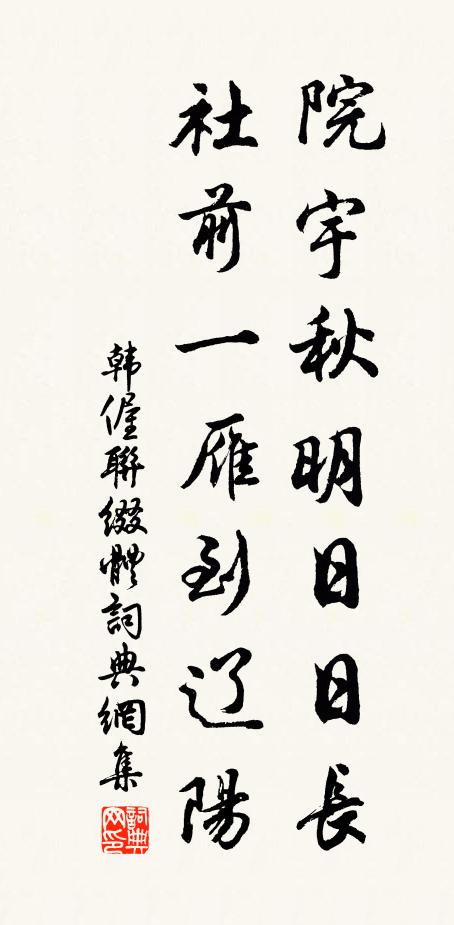 院宇秋明日日長
社前一雁到辽陽
韩偓聯綴體詞典網集
詞典网印